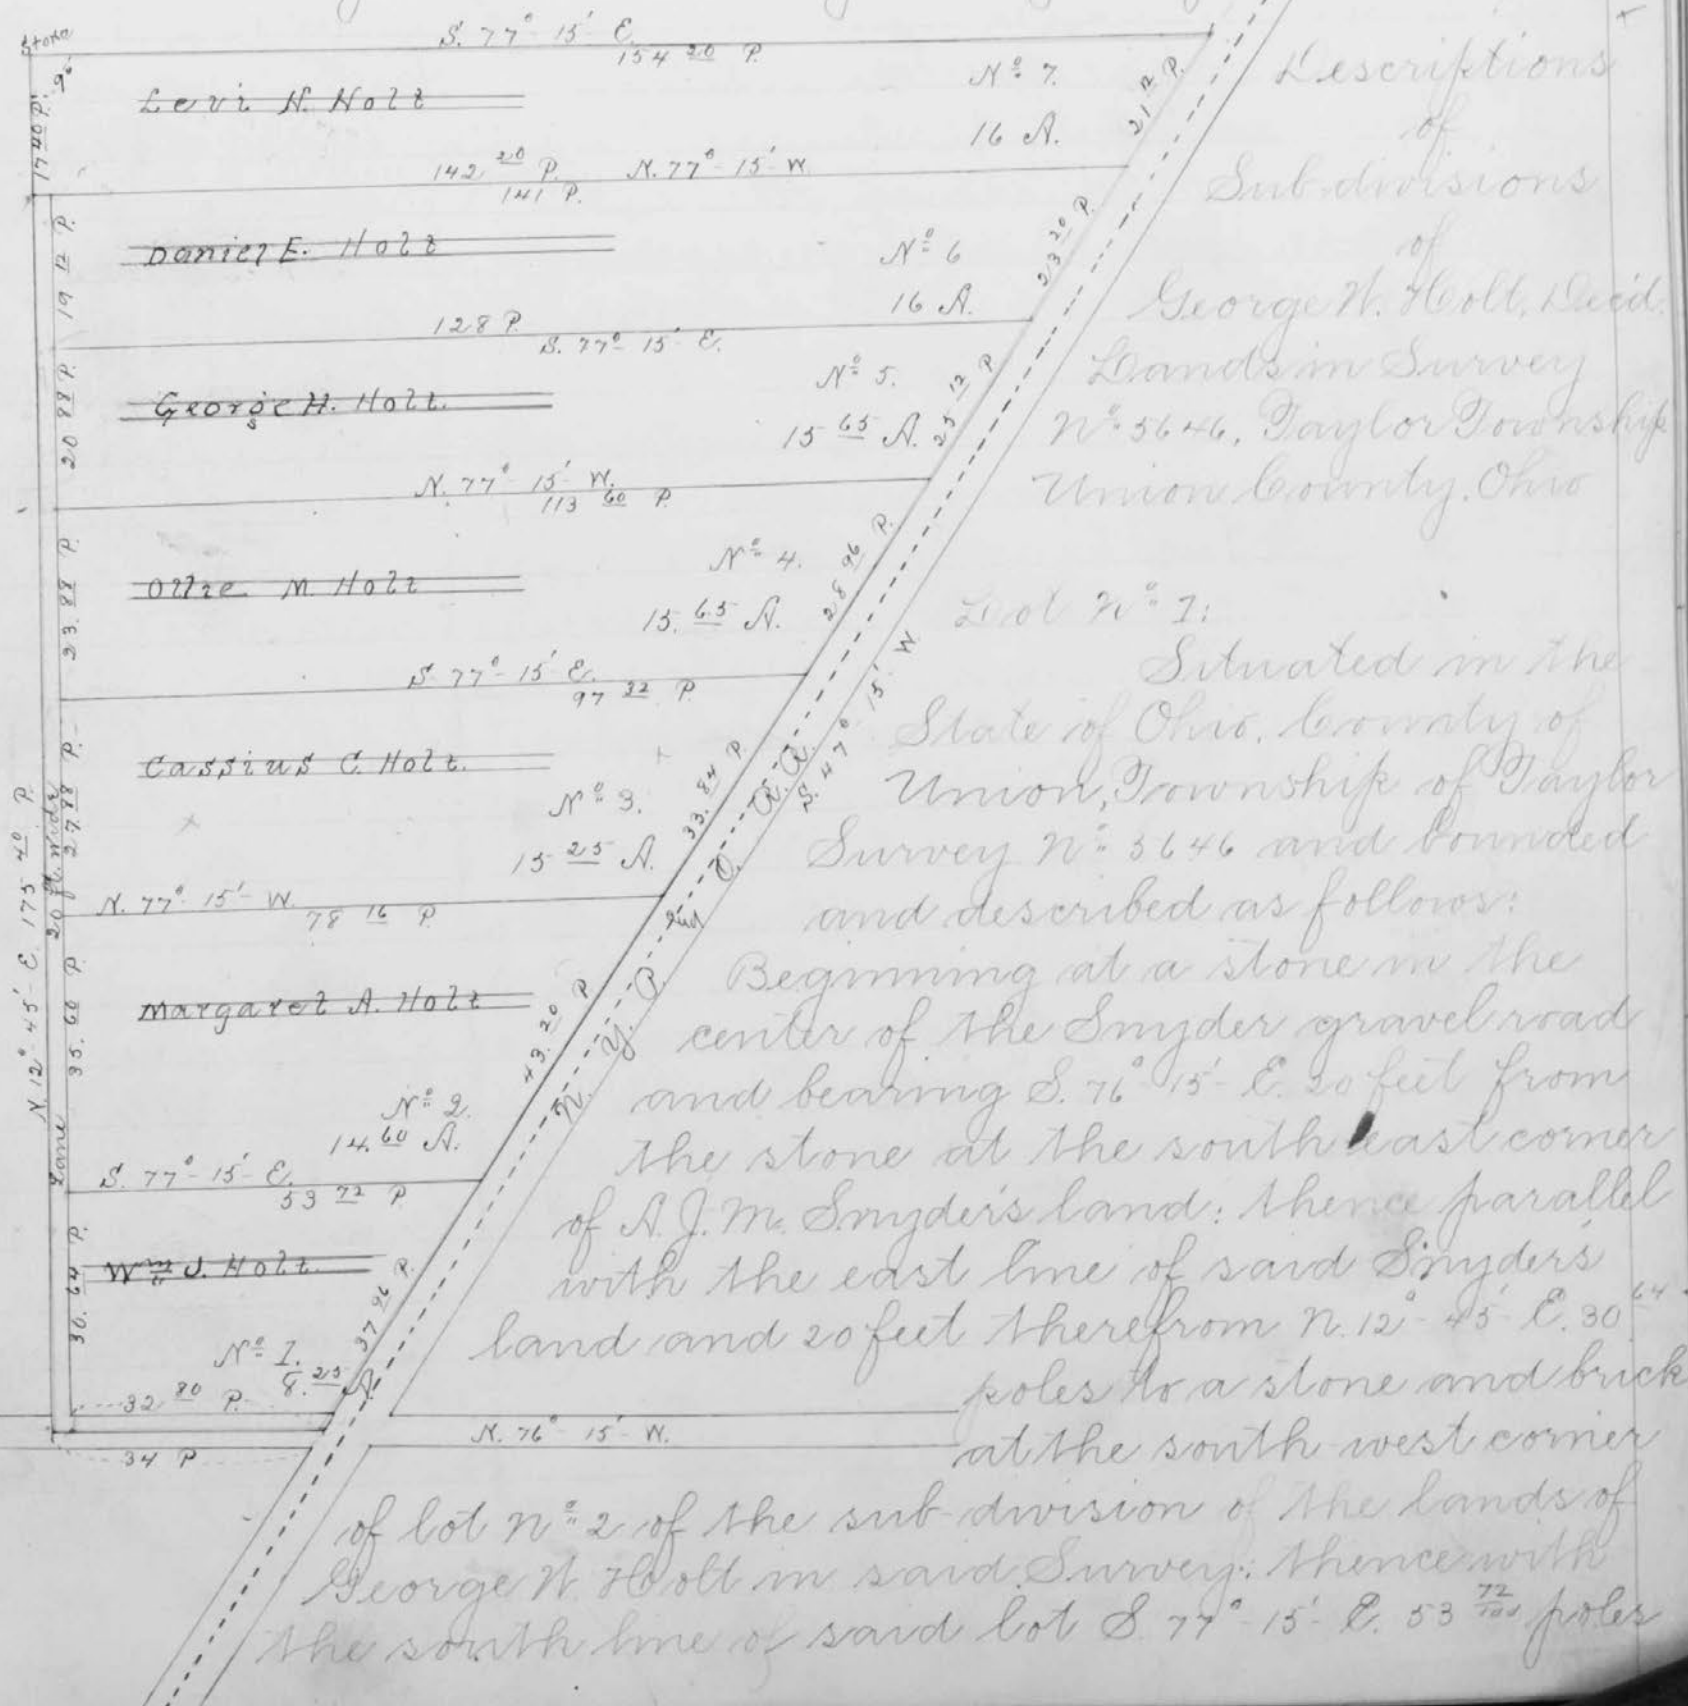 Stone
S. 77° 15' E.
154 20 P.
Levi H. Holt
No 7.
16 A.
17 40 P.
21 12 P.
142 20 P. N. 77° 15' W
141 P.
Daniel E. Holt
No 6
16 A.
19 12 P.
23 20 P.
128 P.
S. 77° 15' E.
George H. Holt.
No 5.
15 65 A.
20 88 P.
25 12 P.
N. 77° 15' W.
113 60 P.
Ollie M Holt
No 4.
15. 65 A.
23. 88 P.
28 96 P.
S 77° 15' E.
97 32 P
Cassius C. Holt.
No 3.
15 25 A.
27. 88 P.
33. 84 P.
N. 77° 15' W.
78 16 P
Margaret A. Holt
No 2.
14. 60 A.
35. 60 P.
43. 20 P
S. 77° 15' E.
53 72 P
Wm J. Holt.
No 1.
8. 25 A.
30. 64 P.
37 96 P.
32 80 P.
34 P
N. 76° 15' W.
N. 12° 45' E. 175 40 P.
Lane 20 ft. wide
N. Y. P. and O. R. R.
S. 47° 15' W
Descriptions
of
Sub-divisions
of
George W. Holt, Dec'd.
Lands in Survey
No 5646, Taylor Township
Union County, Ohio
Lot No 1:
Situated in the
State of Ohio, County of
Union, Township of Taylor
Survey No 5646 and bounded
and described as follows:
Beginning at a stone in the
center of the Snyder gravel road
and bearing S. 76° 15' E. 20 feet from
the stone at the south east corner
of A. J. M. Snyder's land: thence parallel
with the east line of said Snyder's
land and 20 feet therefrom N. 12° 45' E. 30 64
poles to a stone and brick
at the south west corner
of lot No 2 of the sub-division of the lands of
George W. Holt in said Survey: thence with
the south line of said lot S. 77° 15' E. 53 72/100 poles